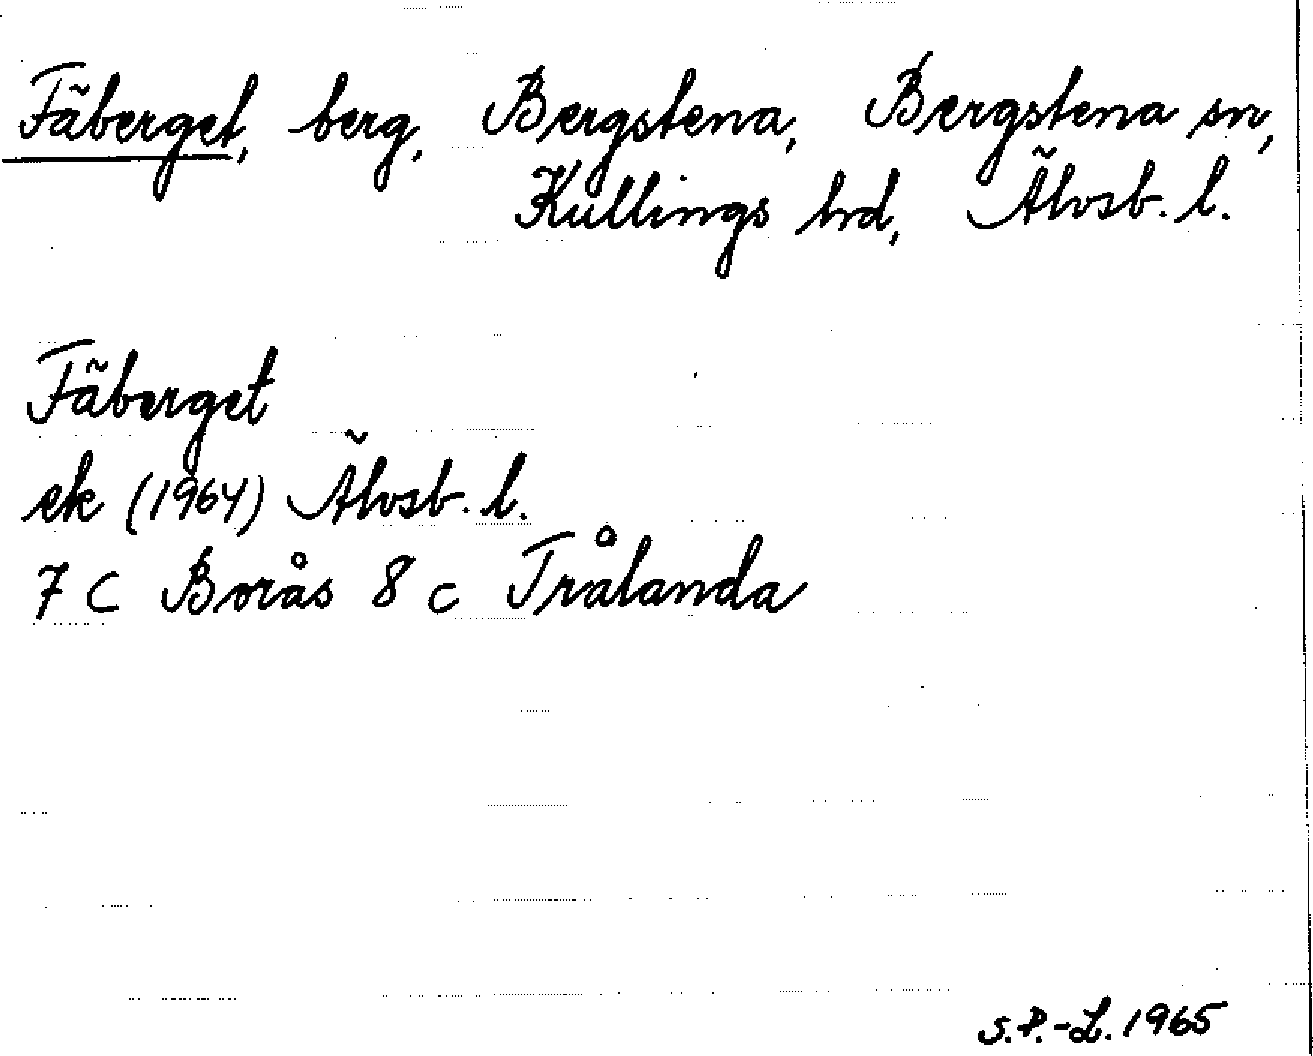 Fäberget, berg, Bergstena, Bergstena sn,
Kullings hrd, Älvsb. l.
Fäberget
ek (1964) Älvsb. l.
7 C Borås 8 c Trålanda
S.P.-L. 1965